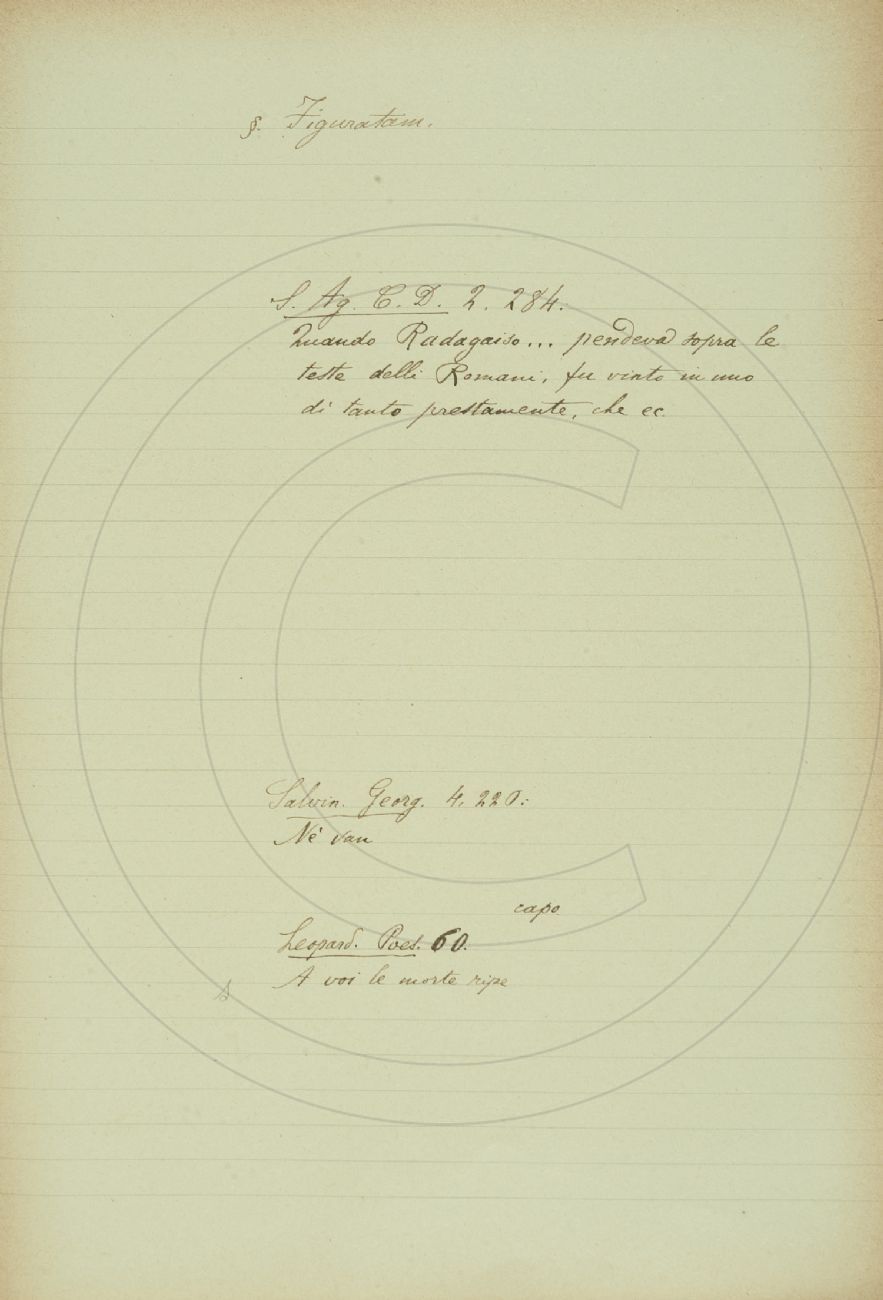 §. Figuratam.
S. Ag. C. D. 2. 284.
Quando Radagaiso... pendeva sopra le
teste delli Romani, fu vinto in uno
dì tanto prestamente, che ec.
Salvin. Georg. 4. 220:
Nè van
capo
Leopard. Poes. 60.
A voi le morte ripe